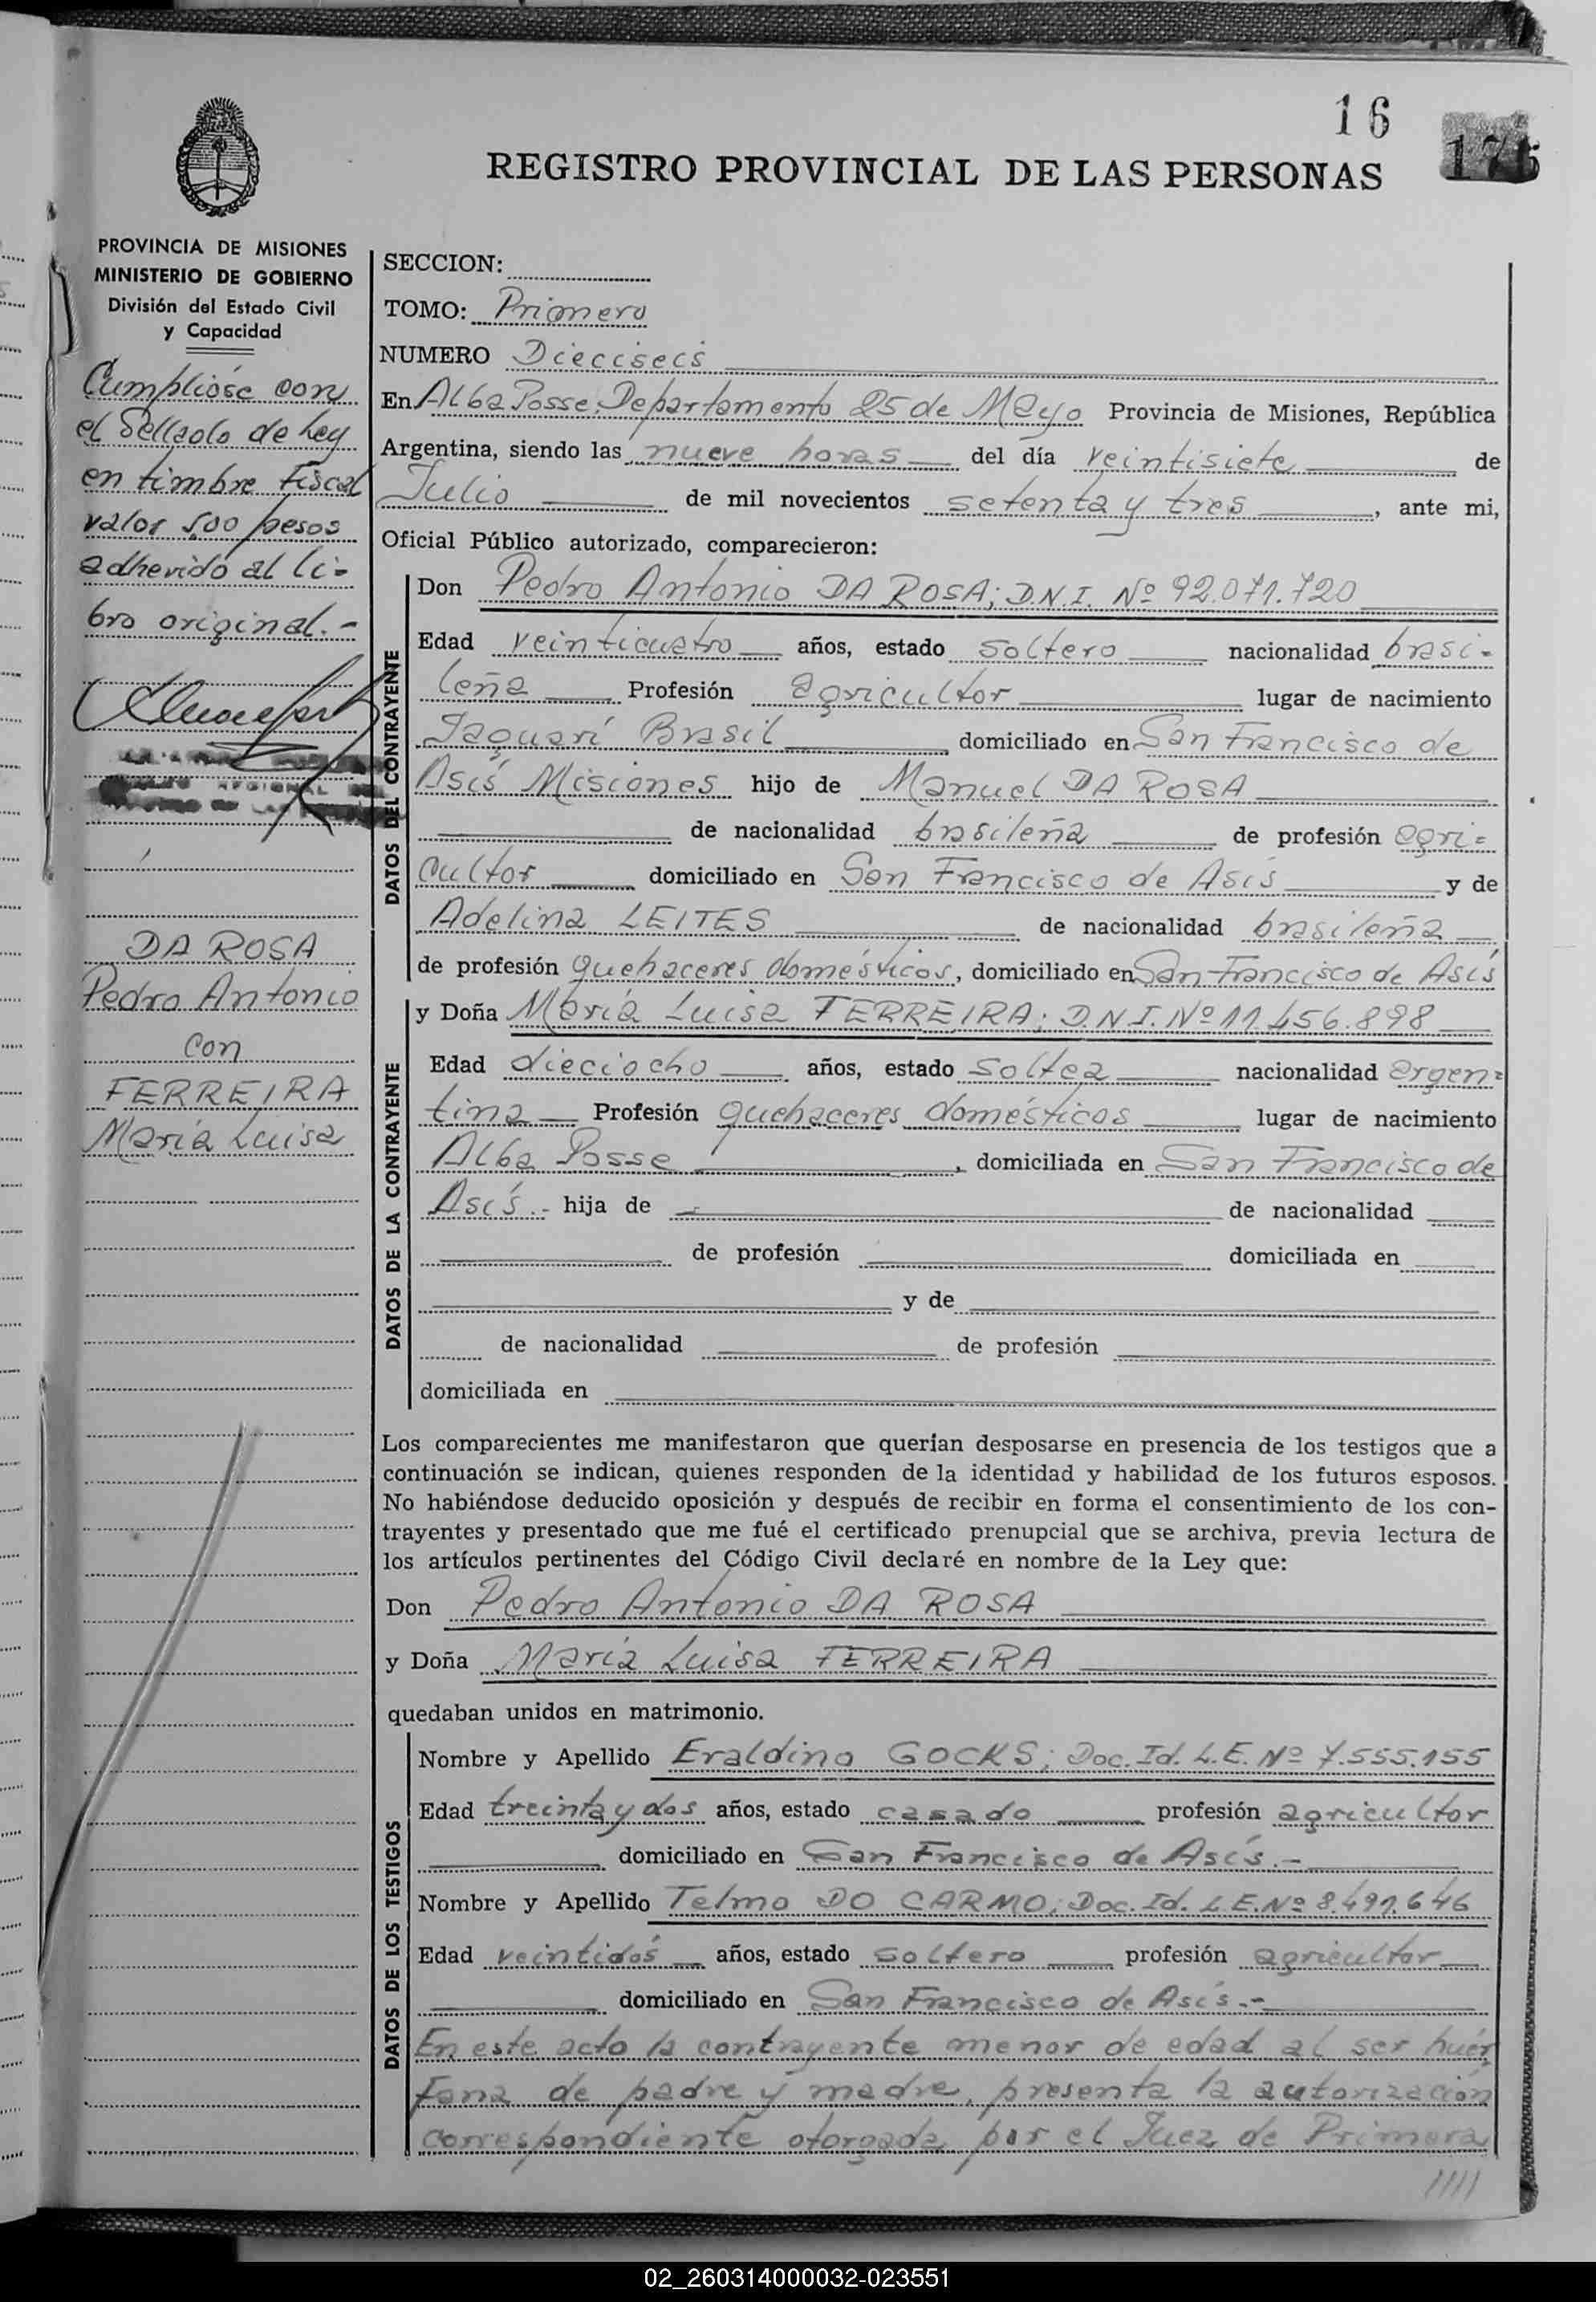 16
176
REGISTRO PROVINCIAL DE LAS PERSONAS
PROVINCIA DE MISIONES
MINISTERIO DE GOBIERNO
División del Estado Civil
y Capacidad
Cumplióse con
el Sellado de Ley
en timbre Fiscal
valor 5,00 pesos
adherido al li-
bro original.-
DA ROSA
Pedro Antonio
con
FERREIRA
María Luisa
SECCION:
TOMO: Primero
NUMERO Dieciseis
En Alba Posse, Departamento 25 de Mayo Provincia de Misiones, República
Argentina, siendo las nueve horas del día veintisiete de
Julio de mil novecientos setenta y tres, ante mi,
Oficial Público autorizado, comparecieron:
DATOS DEL CONTRAYENTE
Don Pedro Antonio DA ROSA; D.N.I. Nº 92.071.720
Edad veinticuatro años, estado soltero nacionalidad brasi-
leña Profesión agricultor lugar de nacimiento
Jaguarí Brasil domiciliado en San Francisco de
Asís Misiones hijo de Manuel DA ROSA
de nacionalidad brasileña de profesión agri-
cultor domiciliado en San Francisco de Asís y de
Adelina LEITES de nacionalidad brasileña
de profesión quehaceres domésticos, domiciliado en San Francisco de Asís
DATOS DE LA CONTRAYENTE
y Doña María Luisa FERREIRA; D.N.I. Nº 11.456.898
Edad dieciocho años, estado soltea nacionalidad argen-
tina Profesión quehaceres domésticos lugar de nacimiento
Alba Posse, domiciliada en San Francisco de
Asís.- hija de de nacionalidad
de profesión domiciliada en
y de
de nacionalidad de profesión
domiciliada en
Los comparecientes me manifestaron que querían desposarse en presencia de los testigos que a
continuación se indican, quienes responden de la identidad y habilidad de los futuros esposos.
No habiéndose deducido oposición y después de recibir en forma el consentimiento de los con-
trayentes y presentado que me fué el certificado prenupcial que se archiva, previa lectura de
los artículos pertinentes del Código Civil declaré en nombre de la Ley que:
Don Pedro Antonio DA ROSA
y Doña María Luisa FERREIRA
quedaban unidos en matrimonio.
DATOS DE LOS TESTIGOS
Nombre y Apellido Eraldino GOCKS; Doc. Id. L.E. Nº 7.555.155
Edad treinta y dos años, estado casado profesión agricultor
domiciliado en San Francisco de Asís.-
Nombre y Apellido Telmo DO CARMO; Doc. Id. L.E. Nº 8.491.646
Edad veintidós años, estado soltero profesión agricultor
domiciliado en San Francisco de Asís.-
En este acto la contrayente menor de edad al ser huér
fana de padre y madre, presenta la autorización
correspondiente otorgada por el Juez de Primera
////
02_260314000032-023551